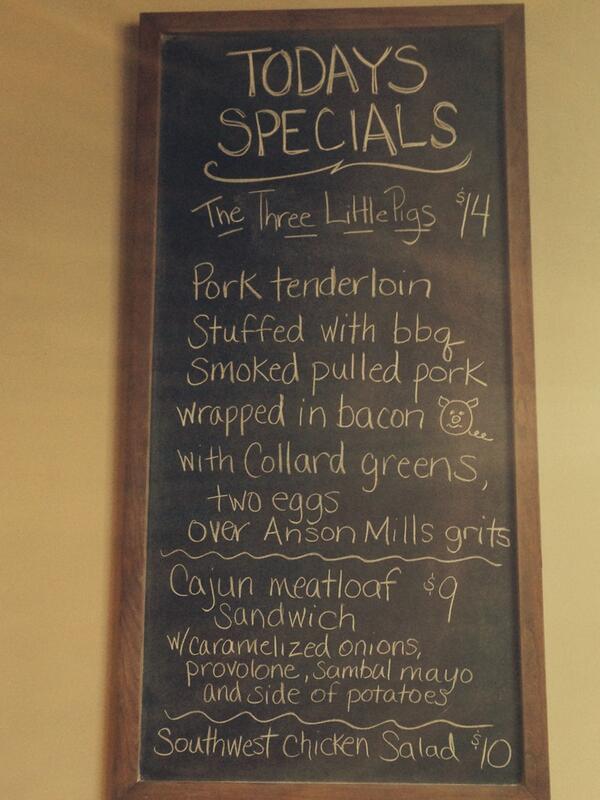 TODAYS
SPECIALS
The Three Little Pigs $14
Pork tenderloin
Stuffed with bbq
Smoked pulled pork
wrapped in bacon
with Collard greens,
two eggs
over Anson Mills grits
Cajun meatloaf $9
Sandwich
w/caramelized onions,
provolone, Sambal mayo
and side of potatoes
Southwest Chicken Salad $10